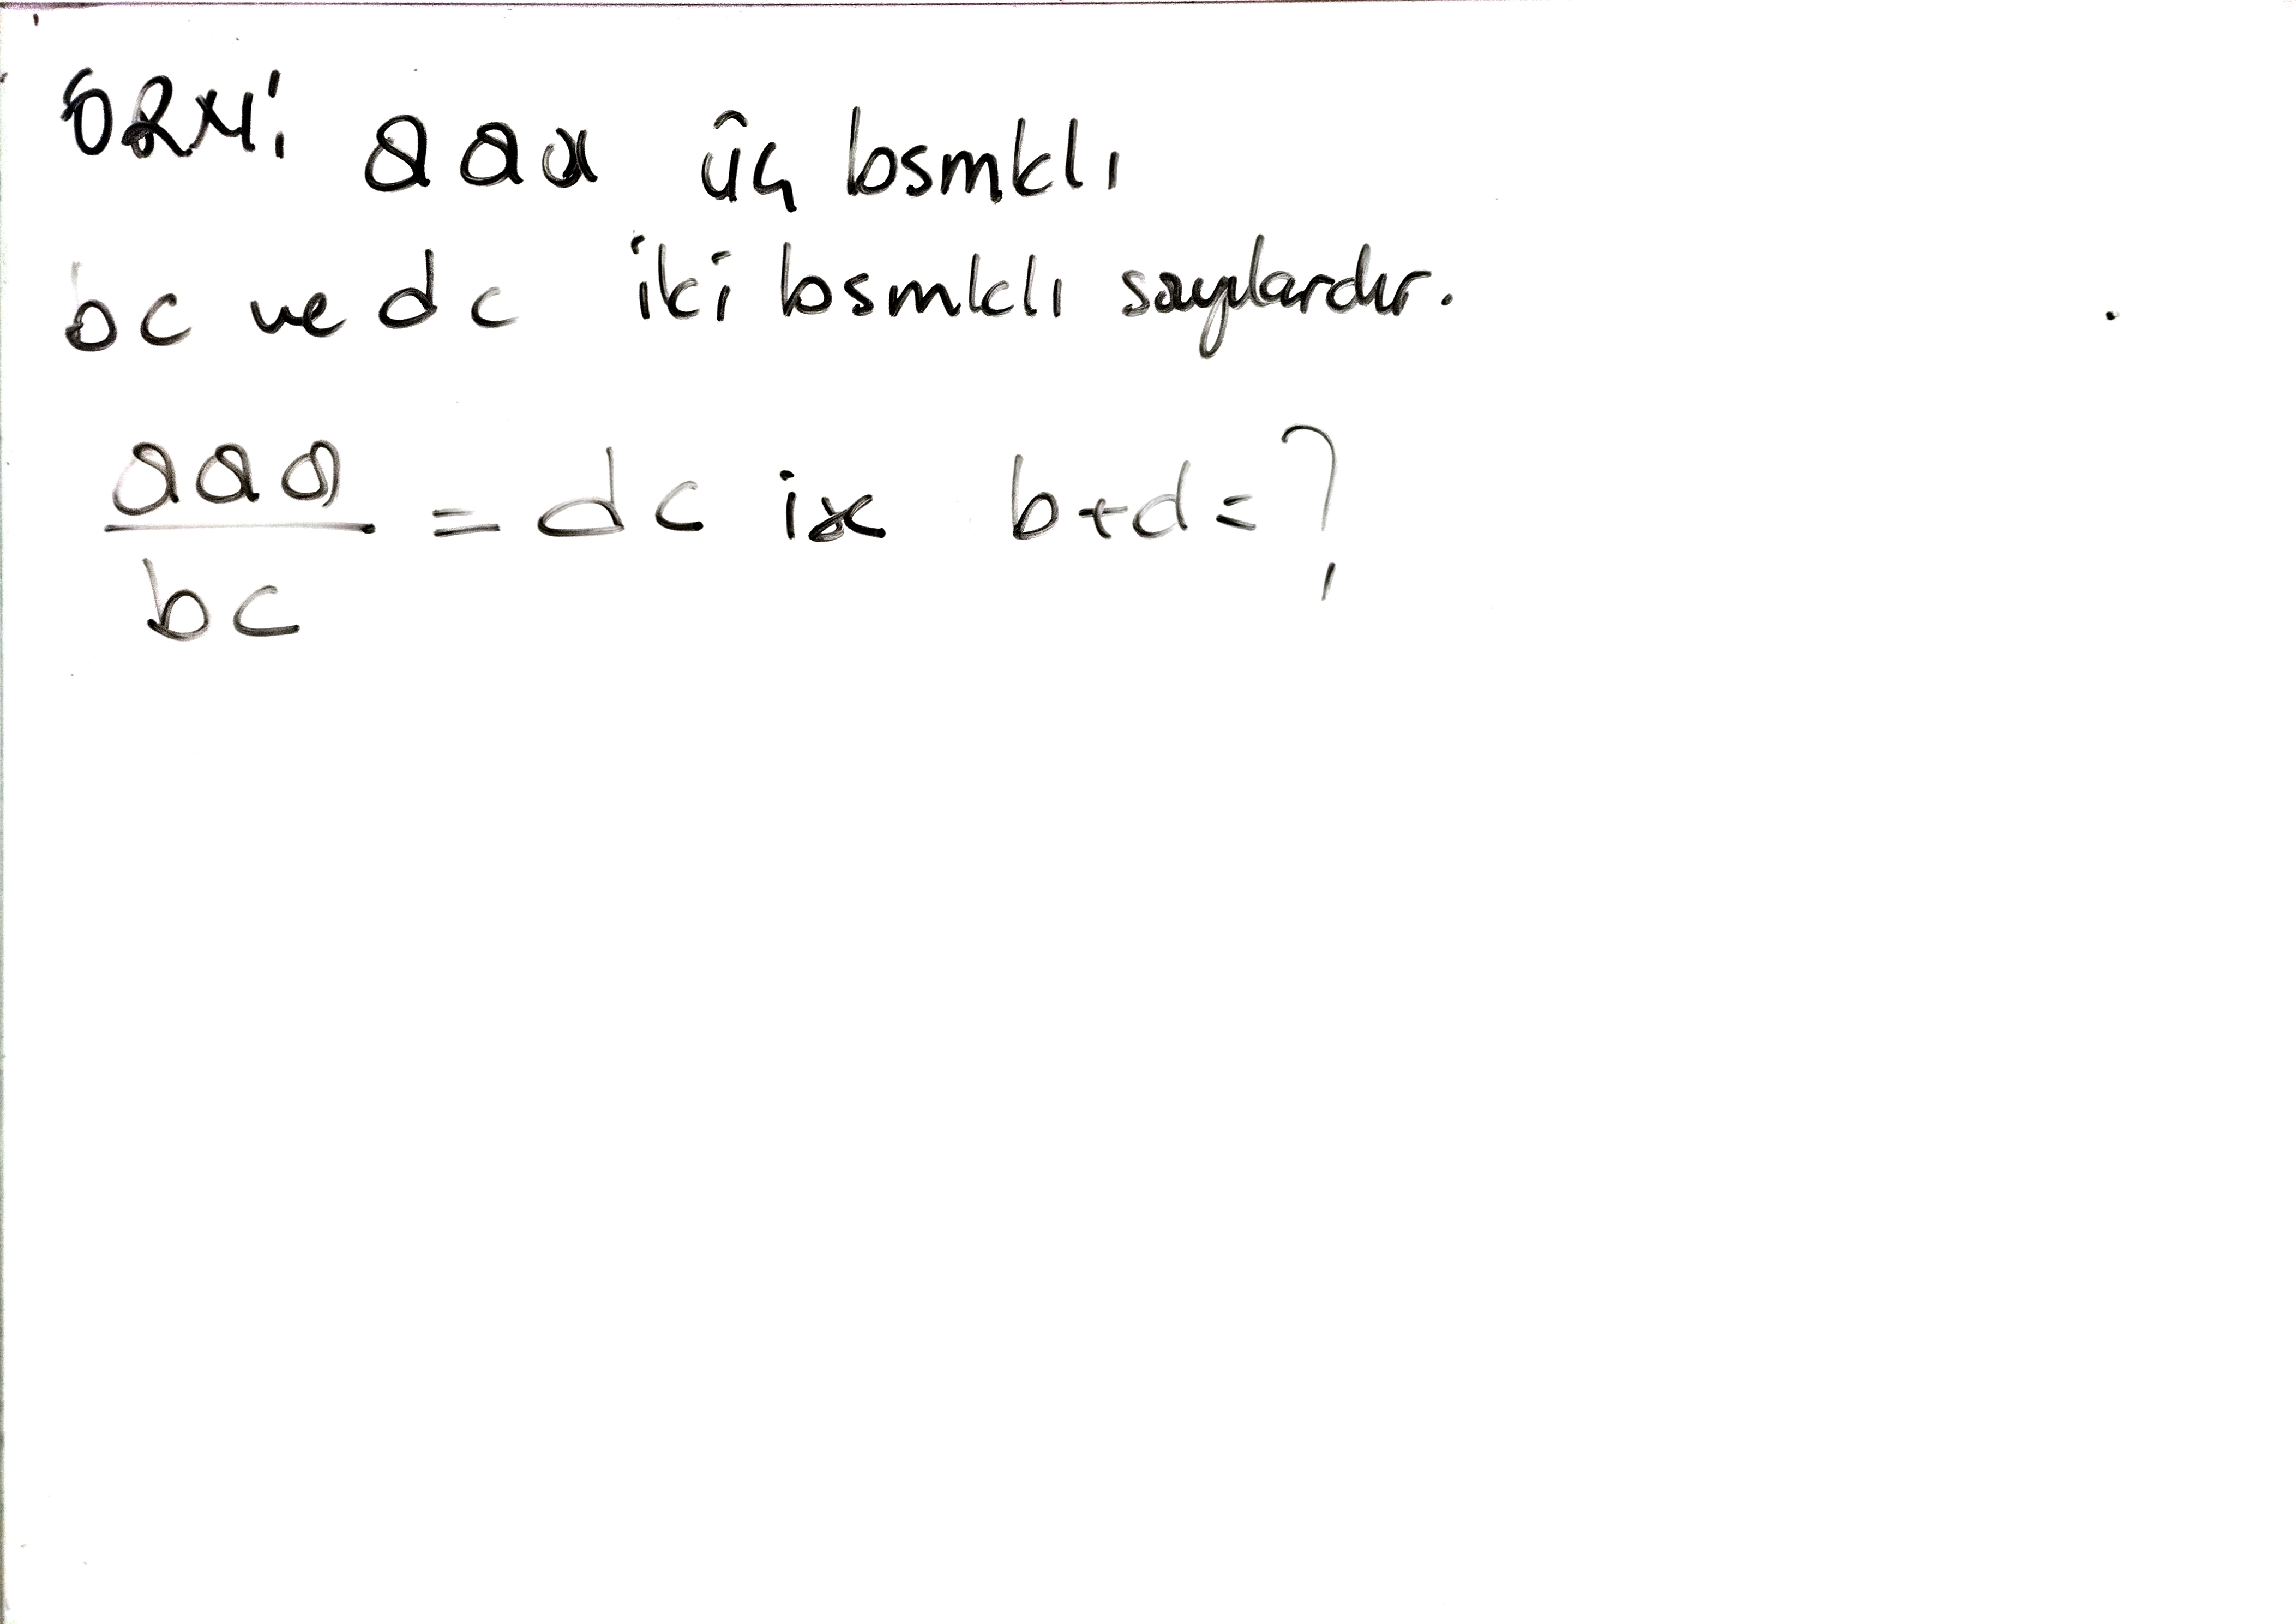 ÖRN:  aaa  üç bsmklı
bc ve dc  iki bsmklı sayılardır.
aaa
bc
= dc ise b+d=?